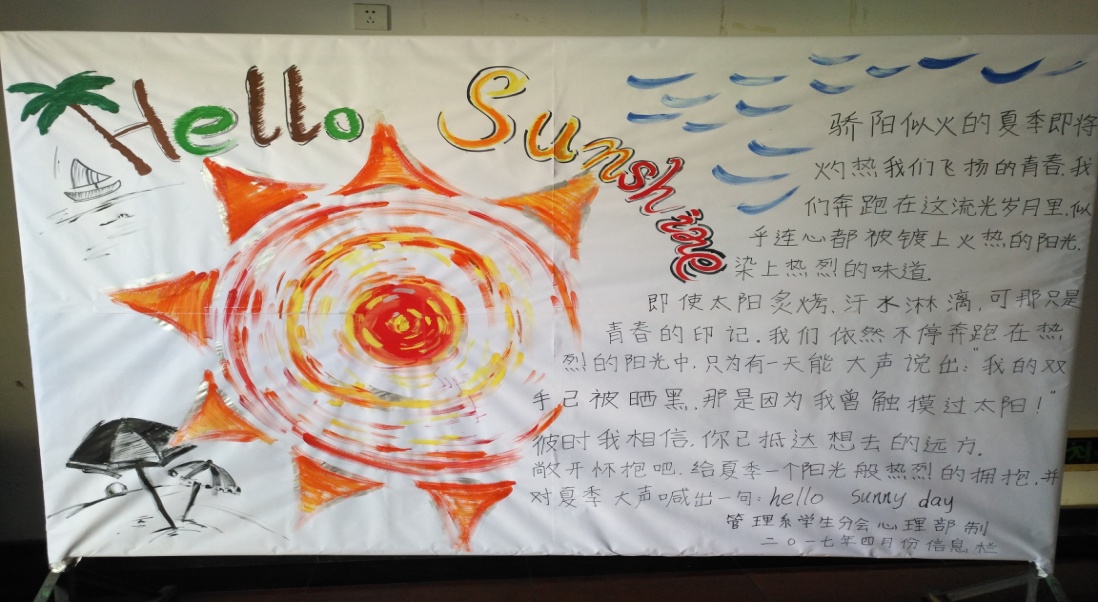 Hello Sunshine
骄阳似火的夏季即将
灼热我们飞扬的青春.我
们奔跑在这流光岁月里.似
乎连心都被镀上火热的阳光.
染上热烈的味道.
即使太阳炙烤.汗水淋漓,可那只是
青春的印记.我们依然不停奔跑在热
烈的阳光中.只为有一天能大声说出:"我的双
手已被晒黑.那是因为我曾触摸过太阳!"
彼时我相信.你已抵达想去的远方.
敞开怀抱吧.给夏季一个阳光般热烈的拥抱.并
对夏季大声喊出一句:hello sunny day
管理系学生分会心理部制
二〇一七年四月份信息栏